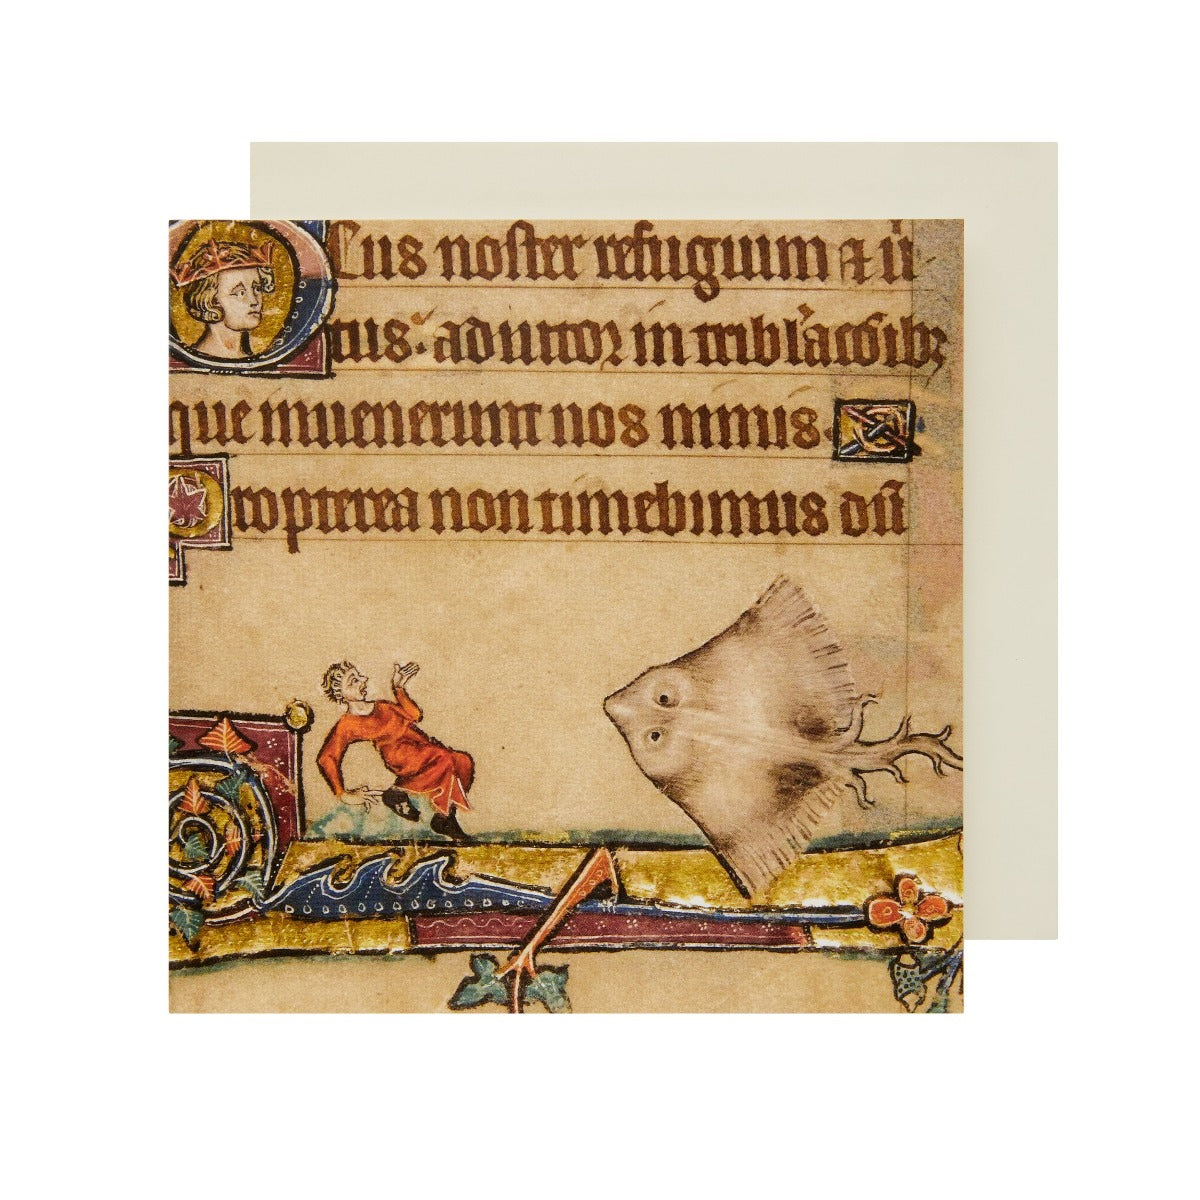 DEus noster refugium & uir
tus: adiutor in tribl'acōibꝫ
que inuenerunt nos nimis.
Propterea non timebimus dū